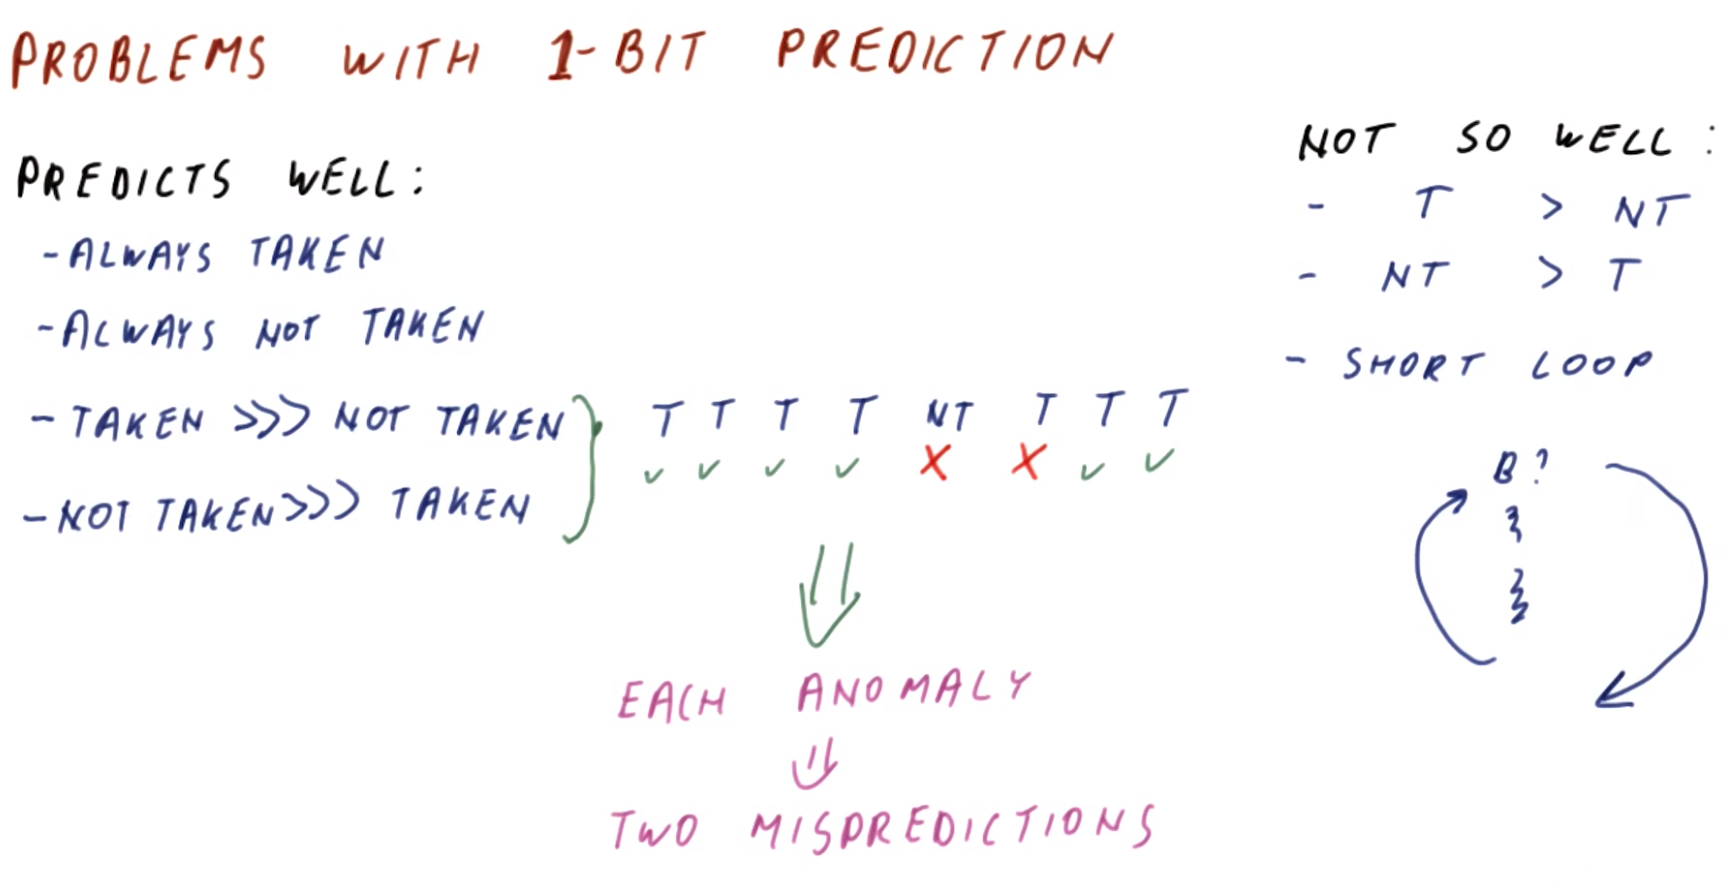 PROBLEMS WITH 1-BIT PREDICTION
PREDICTS WELL:
- ALWAYS TAKEN
- ALWAYS NOT TAKEN
- TAKEN >>> NOT TAKEN
- NOT TAKEN >>> TAKEN
T T T T NT T T T
✓ ✓ ✓ ✓ X X ✓ ✓
EACH ANOMALY
TWO MISPREDICTIONS
NOT SO WELL:
- T > NT
- NT > T
- SHORT LOOP
B?